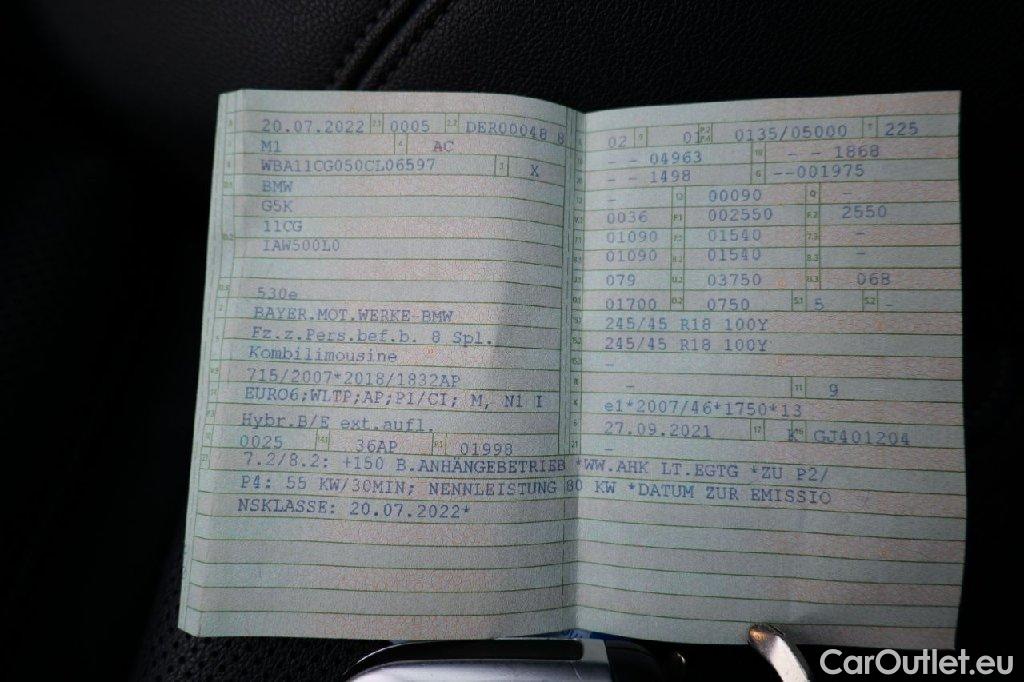 20.07.2022 2.1 0005 2.2 DER00048 8
M1 4 AC
WBA11CG050CL06597 3 X
BMW
G5K
11CG
IAW500L0
530e
BAYER.MOT.WERKE-BMW
Fz.z.Pers.bef.b. 8 Spl.
Kombilimousine
715/2007*2018/1832AP
EURO6;WLTP;AP;PI/CI; M, N1 I
Hybr.B/E ext.aufl.
0025 14.1 36AP P.1 01998
02 9 01 P.2 P.4 0135/05000 T 225
- - 04963 19 - - 1868
- - 1498 G --001975
- 13 00090 Q -
0036 F.1 002550 F.2 2550
01090 01540 7.3 -
01090 01540 8.3 -
079 U.2 03750 U.3 068
01700 O.2 0750 S.1 5 S.2 -
245/45 R18 100Y
245/45 R18 100Y
-
- 11 9
e1*2007/46*1750*13
27.09.2021 17 K 16 GJ401204
-
7.2/8.2: +150 B.ANHÄNGEBETRIEB *WW.AHK LT.EGTG *ZU P2/
P4: 55 KW/30MIN; NENNLEISTUNG 80 KW *DATUM ZUR EMISSIO
NSKLASSE: 20.07.2022*
CarOutlet.eu